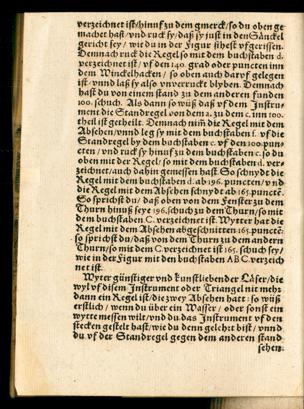 verzeichnet ist/hinuf zu dem gmerck/so du oben ge
machet hast/vnd ruck sy/daß sy just in den Sänckel
gericht sey/wie du in der Figur sihest vfgerissen.
Demnach ruck die Regel/so mit dem buchstaben d.
verzeichnet ist/vf den 140. grad oder puncten inn
dem Winckelhacken/so oben auch darvf gelegen
ist/vnnd laß sy also vnverruckt blyben. Demnach
hast du von einem stand zu dem anderen funden
100. schuch. Als dann so wüß daß vf dem Instru-
ment die Standregel von dem a. zu dem c. inn 100.
theil ist getheilt. Demnach niñ die Regel mit dem
Absehen/vnnd leg sy mit dem buchstaben f. vf die
Standregel by dem buchstaben c. vf den 100. pun-
cten/vnd ruck sy hinuf zu dem buchstaben e. so du
oben mit der Regel/so mit dem buchstaben d. ver-
zeichnet/auch dahin gemessen hast. So schnydt die
Regel mit dem buchstaben d. ab 196. puncten/vnd
die Regel mit dem Absehen schnydt ab 165. punctẽ.
So sprichst du/daß oben von dem Fenster zu dem
Thurn hinuß seye 196. schuch zu dem Thurn/so mit
dem buchstaben C. verzeichnet ist. Wytter hat die
Regel mit dem Absehen abgeschnitten 165. punctẽ:
so sprichst du/daß von dem Thurn zu dem andern
Thurn/so mit dem C. verzeichnet ist 165. schuch sey/
wie in der Figur mit den buchstaben A B C. verzeich
net ist.
Wyter günstiger vnd kunstliebender Läser/die
wyl vf disem Instrument oder Triangel nit mehr
dann ein Regel ist/die zwey Absehen hatt: so wüß
erstlich/wenn du über ein Wasser/oder sonst ein
wytte messen wilt/vnd du das Instrument vf den
stecken gestelt hast/wie du denn gelehrt bist/vnnd
du vf der Standregel gegen dem anderen stand
sehen